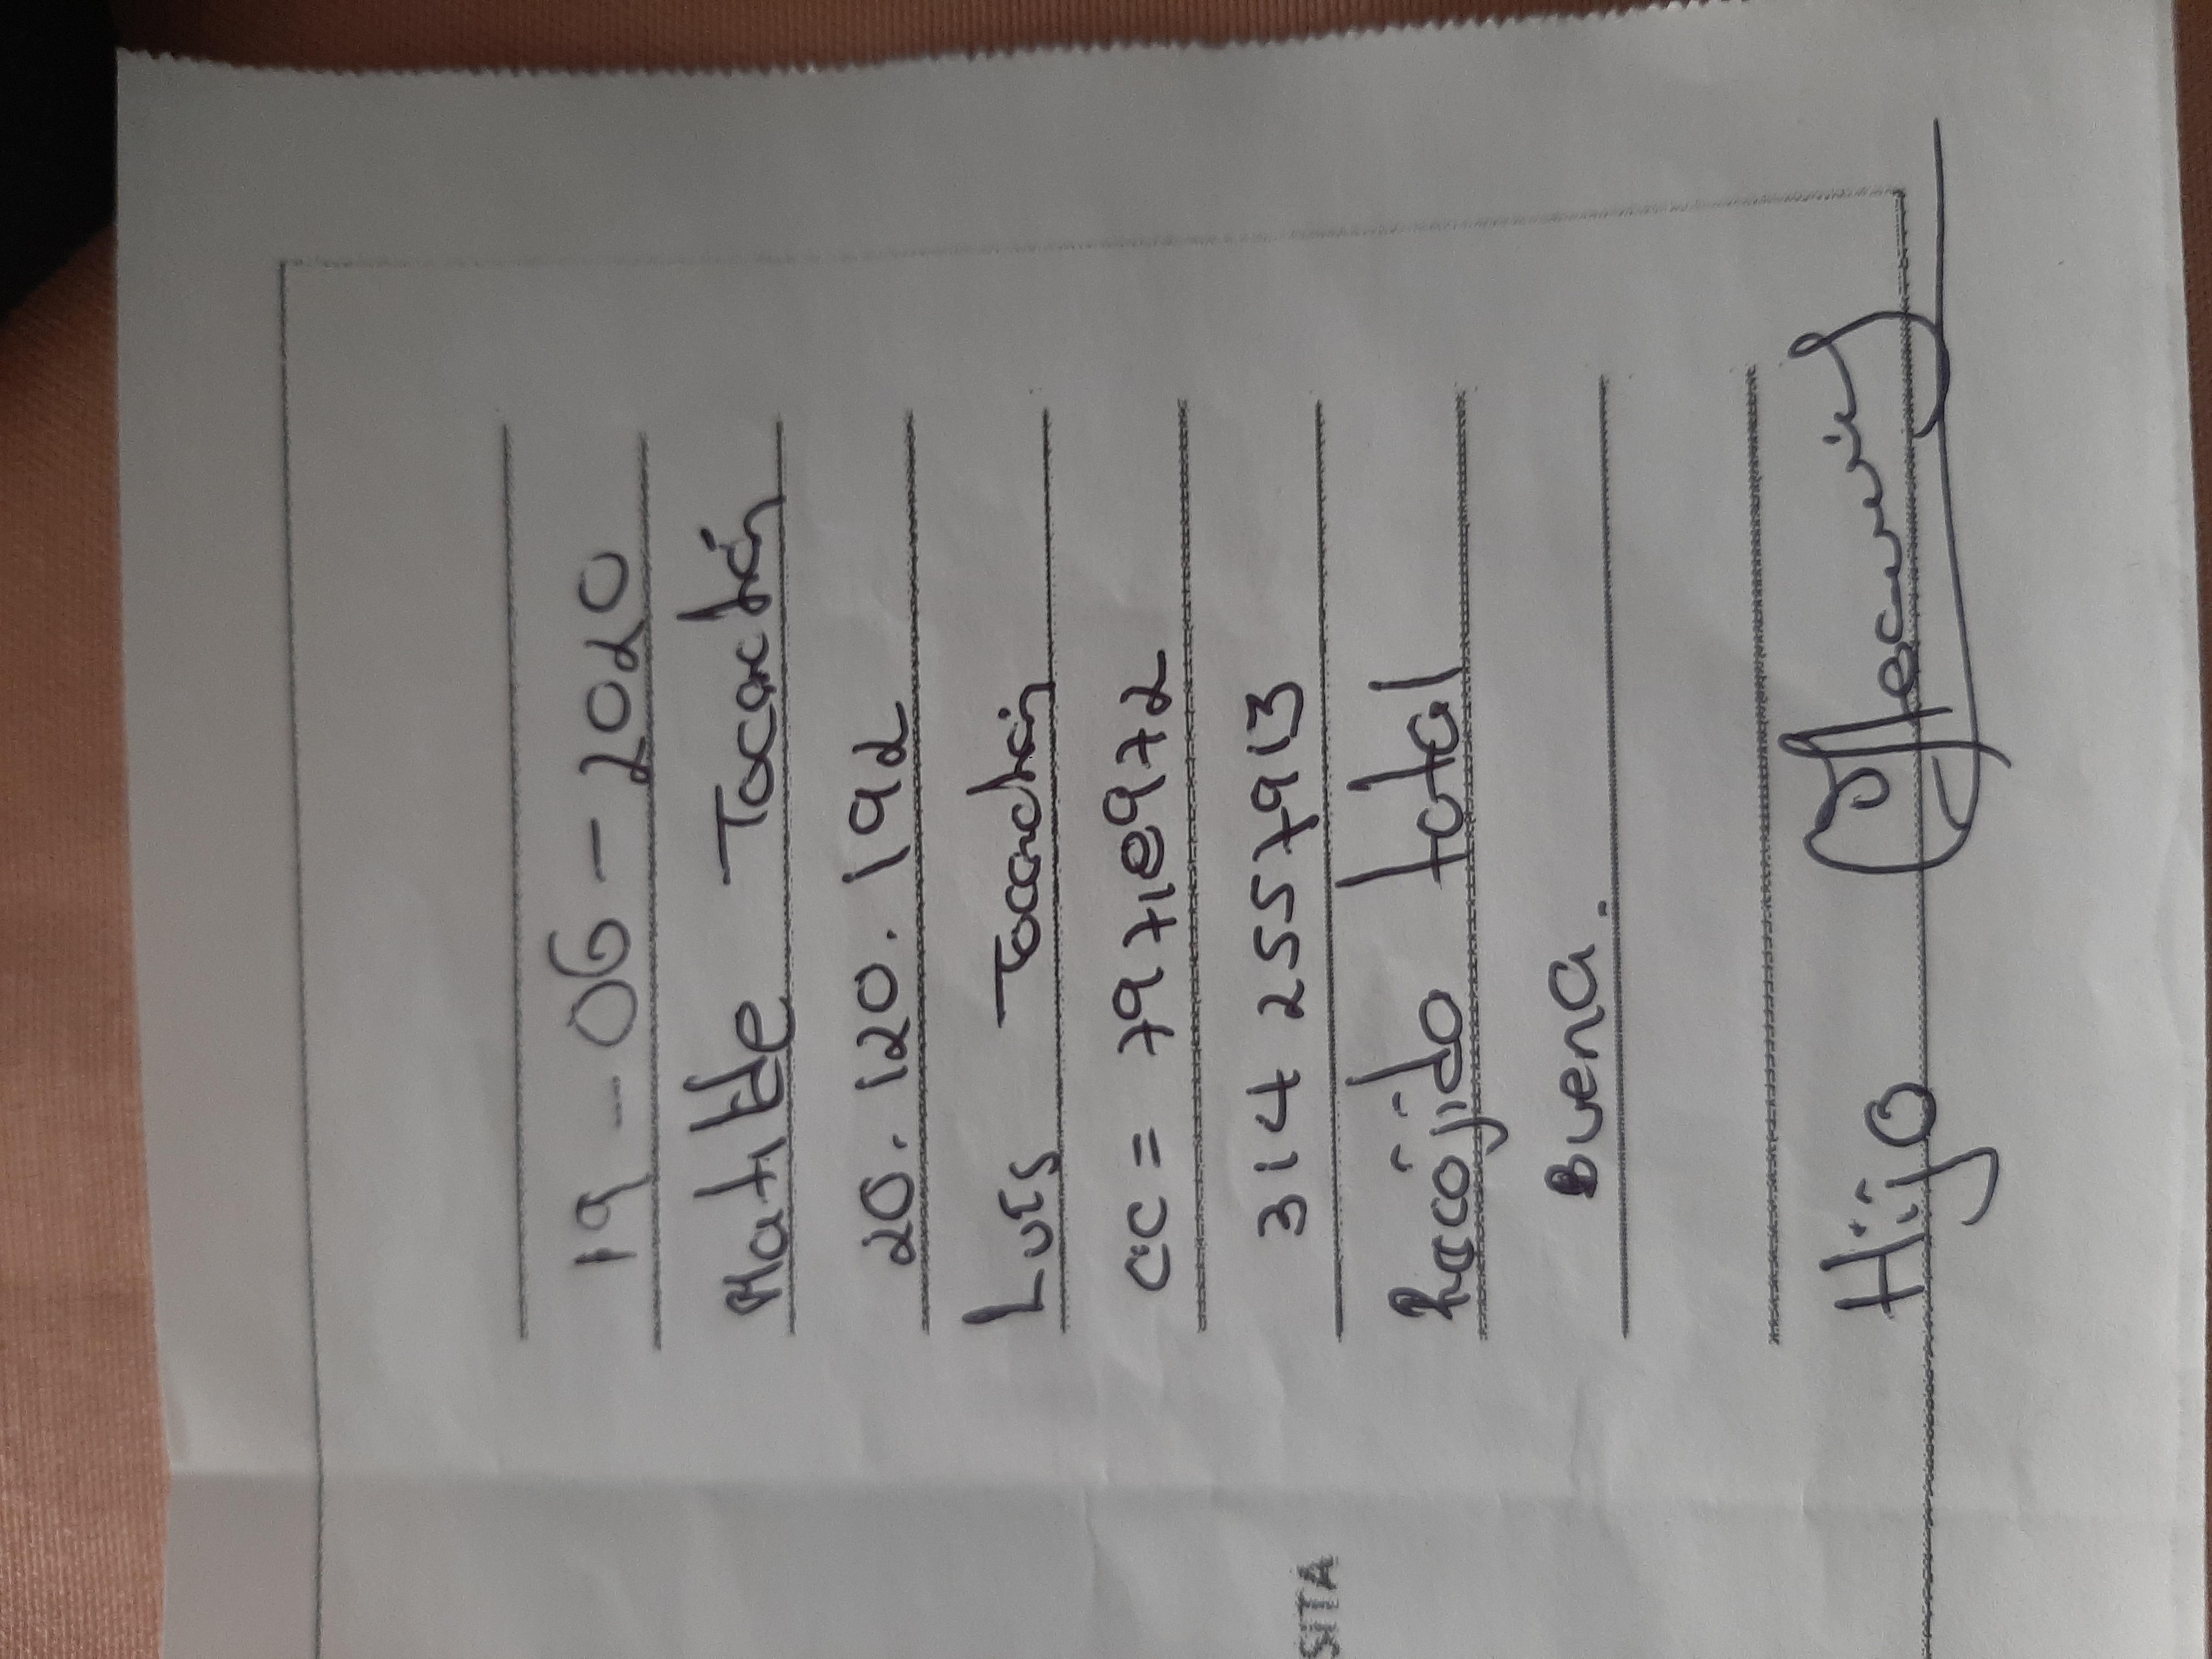 19-06-2020
Matilde Tocarchí
20.120.192
Luis Tocarchí
CC= 79718972
314 2557913
SITA
Recojido total
Buena.
Hijo